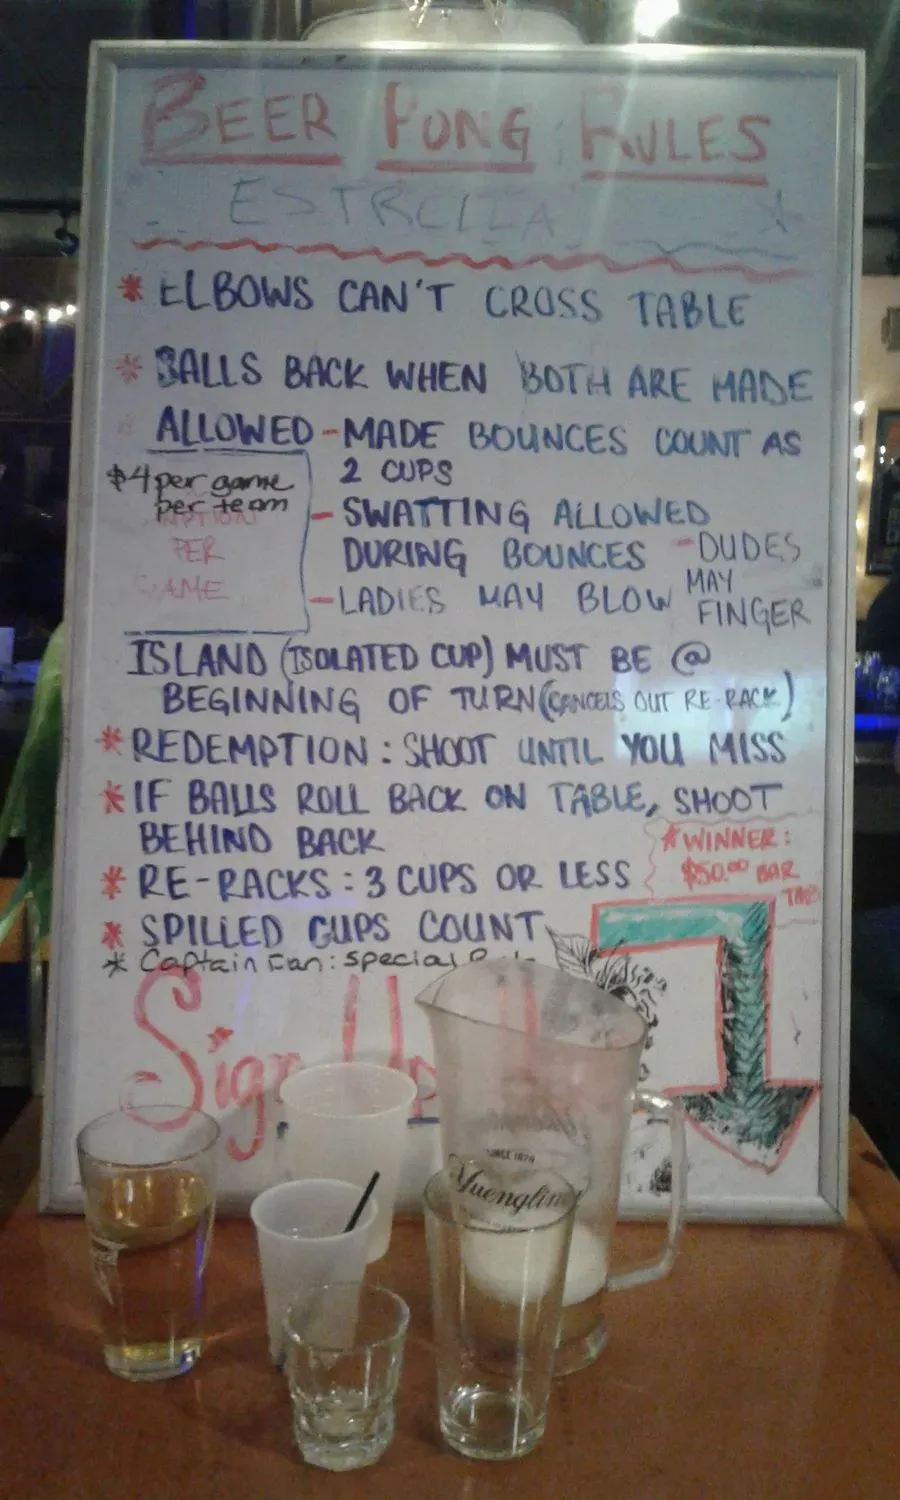 BEER PONG RULES
ESTRELLA
* ELBOWS CAN'T CROSS TABLE
* BALLS BACK WHEN BOTH ARE MADE
ALLOWED - MADE BOUNCES COUNT AS
2 CUPS
$4 per game
per team
PER
GAME
- SWATTING ALLOWED
DURING BOUNCES
- LADIES MAY BLOW
- DUDES
MAY
FINGER
ISLAND (ISOLATED CUP) MUST BE @
BEGINNING OF TURN (CANCELS OUT RE-RACK)
* REDEMPTION: SHOOT UNTIL YOU MISS
* IF BALLS ROLL BACK ON TABLE, SHOOT
BEHIND BACK
* WINNER:
$50.00 BAR
TAB
* RE-RACKS: 3 CUPS OR LESS
* SPILLED CUPS COUNT
* Captain Ean: Special
Sign Up
SINCE 1829
Yuengling